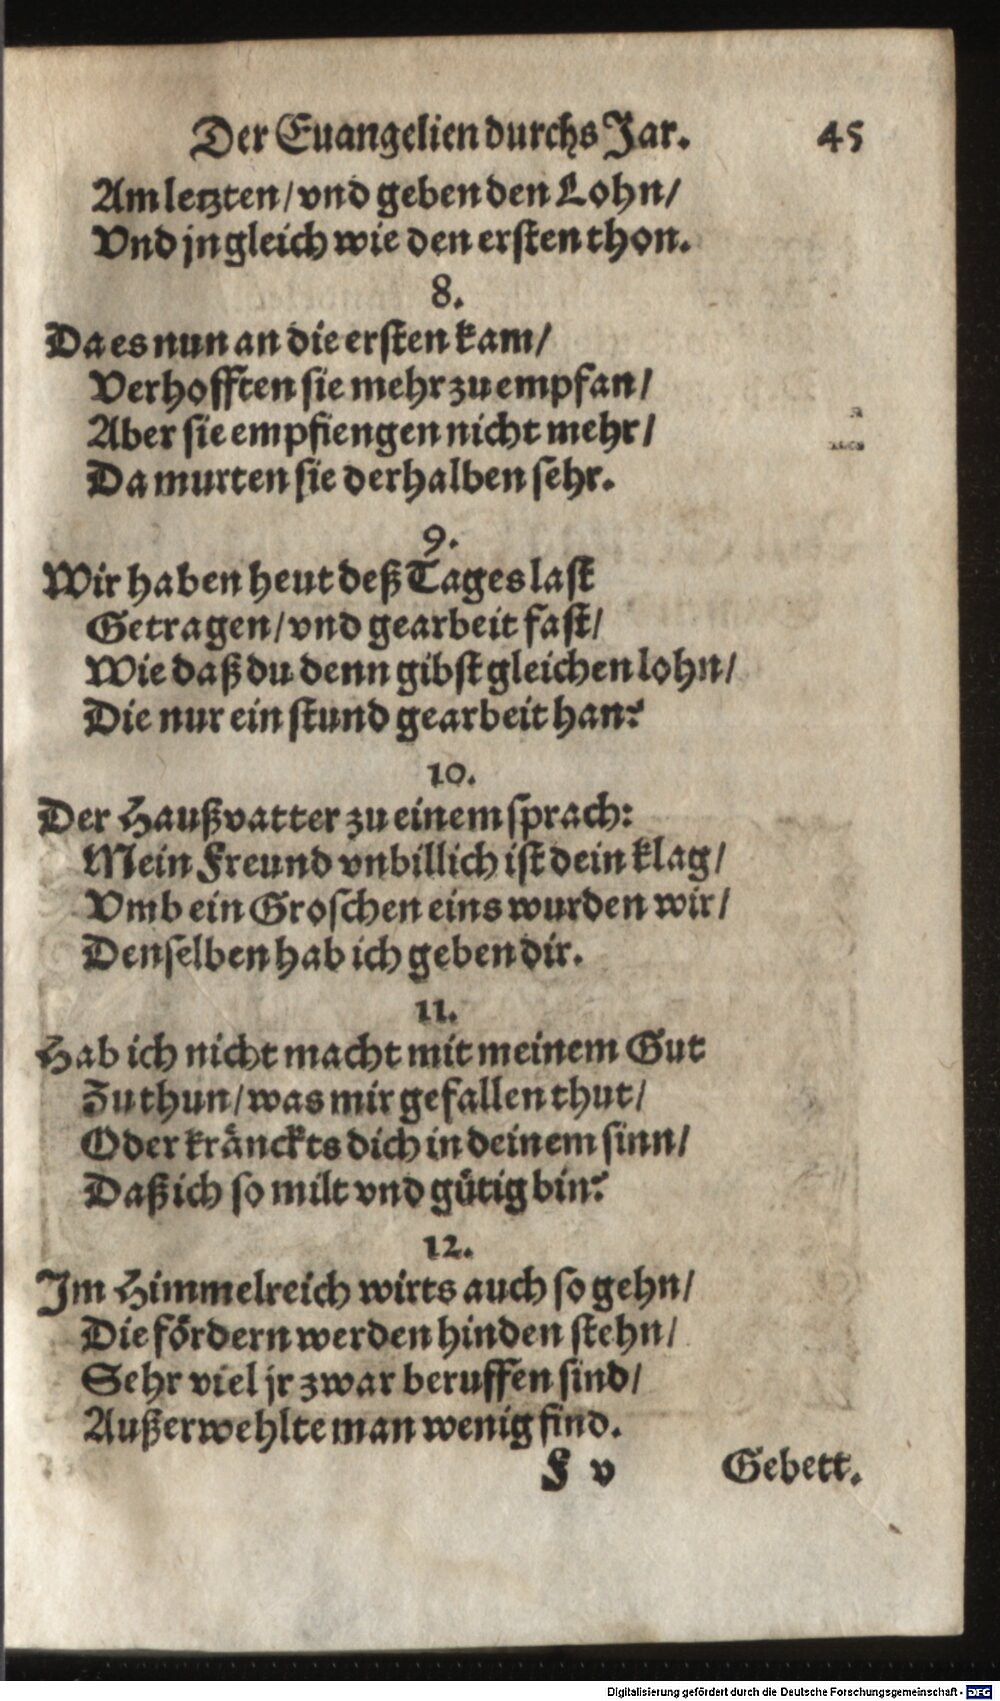 Der Euangelien durchs Jar. 45
Am letzten/ vnd geben den Lohn/
Vnd jn gleich wie den ersten thon.
8.
Da es nun an die ersten kam/
Verhofften sie mehr zu empfan/
Aber sie empfiengen nicht mehr/
Da murten sie derhalben sehr.
9.
Wir haben heut deß Tages last
Getragen/ vnd gearbeit fast/
Wie daß du denn gibst gleichen lohn/
Die nur ein stund gearbeit han?
10.
Der Haußvatter zu einem sprach:
Mein Freund vnbillich ist dein klag/
Vmb ein Groschen eins wurden wir/
Denselben hab ich geben dir.
11.
Hab ich nicht macht mit meinem Gut
Zu thun/ was mir gefallen thut/
Oder kränckts dich in deinem sinn/
Daß ich so milt vnd gütig bin?
12.
Im Himmelreich wirts auch so gehn/
Die fördern werden hinden stehn/
Sehr viel jr zwar beruffen sind/
Außerwehlte man wenig find.
F v Gebett.
Digitalisierung gefördert durch die Deutsche Forschungsgemeinschaft - DFG